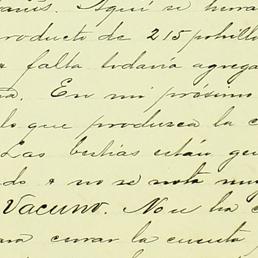 Aquí se
producto de 215 potrillo
falta todavía agrega
En mi próximo
lo que produzca la c
Las bestias están
do & no se nota muy
Vacuno. No se ha
para cerrar la cuenta